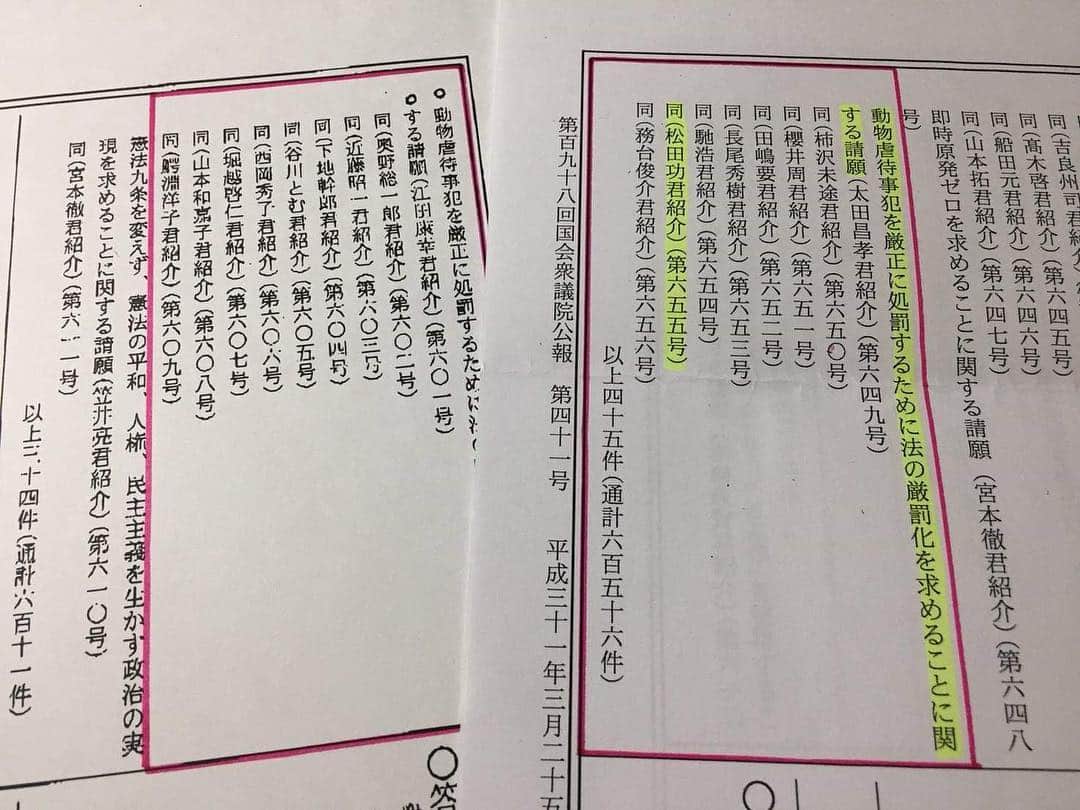 同(吉良州司君紹介)(第六四五号)
同(髙木啓君紹介)(第六四六号)
同(船田元君紹介)(第六四七号)
同(山本拓君紹介)(第六四七号)
即時原発ゼロを求めることに関する請願(宮本徹君紹介)(第六四八
号)
動物虐待事犯を厳正に処罰するために法の厳罰化を求めることに関
する請願(太田昌孝君紹介)(第六四九号)
同(柿沢未途君紹介)(第六五〇号)
同(櫻井周君紹介)(第六五一号)
同(田嶋要君紹介)(第六五二号)
同(長尾秀樹君紹介)(第六五三号)
同(馳浩君紹介)(第六五四号)
同(松田功君紹介)(第六五五号)
同(務台俊介君紹介)(第六五六号)
以上四十五件(通計六百五十六件)
第百九十八回国会衆議院公報 第四十一号 平成三十一年三月二十五
動物虐待事犯を厳正に処罰するために法の
する請願(江田康幸君紹介)(第六〇一号)
同(奥野総一郎君紹介)(第六〇二号)
同(近藤昭一君紹介)(第六〇三号)
同(下地幹郎君紹介)(第六〇四号)
同(谷川とむ君紹介)(第六〇五号)
同(西岡秀子君紹介)(第六〇六号)
同(堀越啓仁君紹介)(第六〇七号)
同(山本和嘉子君紹介)(第六〇八号)
同(鰐淵洋子君紹介)(第六〇九号)
憲法九条を変えず、憲法の平和、人権、民主主義を生かす政治の実
現を求めることに関する請願(笠井亮君紹介)(第六一〇号)
同(宮本徹君紹介)(第六一一号)
以上三十四件(通計六百十一件)